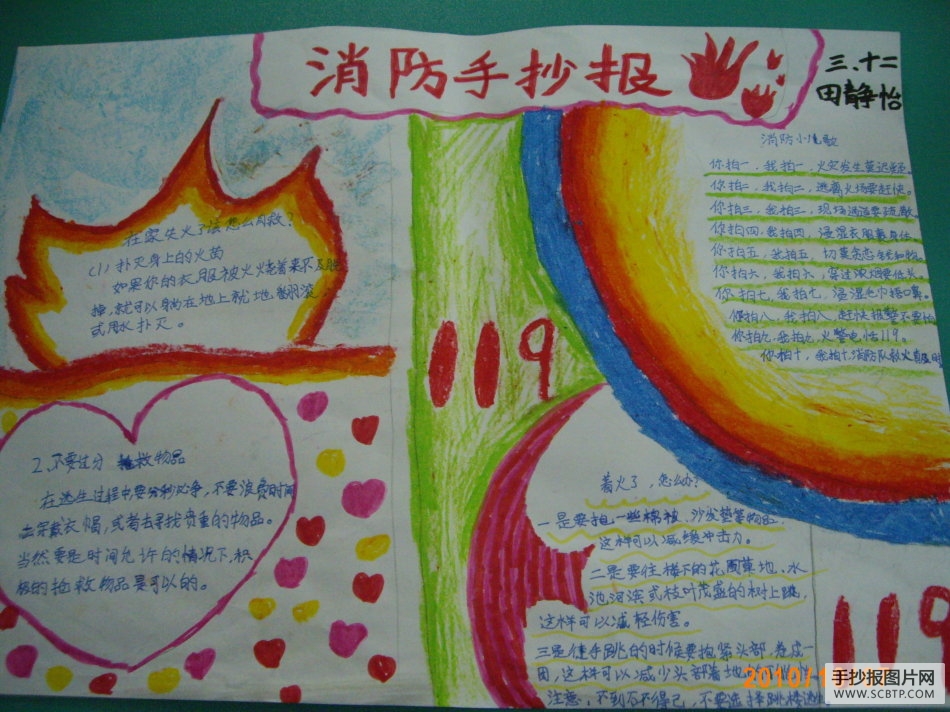 消防手抄报
三、十二
田静怡
在家失火了该怎么自救？
(1) 扑灭身上的火苗
如果你的衣服被火烧着来不及脱
掉，就可以躺在地上就地翻滚，
或用水扑灭。
119
2、不要过分抢救物品
在逃生过程中要分秒必争，不要浪费时间
去穿戴衣帽，或者去寻找贵重的物品。
当然要是时间允许的情况下，积
极的抢救物品是可以的。
消防小儿歌
你拍一，我拍一，火灾发生莫迟疑。
你拍二，我拍二，逃离火场要赶快。
你拍三，我拍三，现场通道要疏散
你拍四，我拍四，浸湿衣服裹身体。
你拍五，我拍五，切莫贪恋钱和物。
你拍六，我拍六，穿过浓烟要低头。
你拍七，我拍七，浸湿毛巾捂口鼻。
你拍八，我拍八，赶快报警不要怕
你拍九，我拍九，火警电话119。
你拍十，我拍十，消防队救火真及时
着火了，怎么办？
一是要抱一些棉被、沙发垫等物品，
这样可以减缓冲击力。
二是要往楼下的花圃草地、水
池河滨或枝叶茂盛的树上跳，
这样可以减轻伤害。
三是徒手跳的时候要抱紧头部，卷成一
团，这样可以减少头部着地
注意，不到不得已，不要选择跳楼逃生
119
2010/11
手抄报图片网
WWW.SCBTP.COM